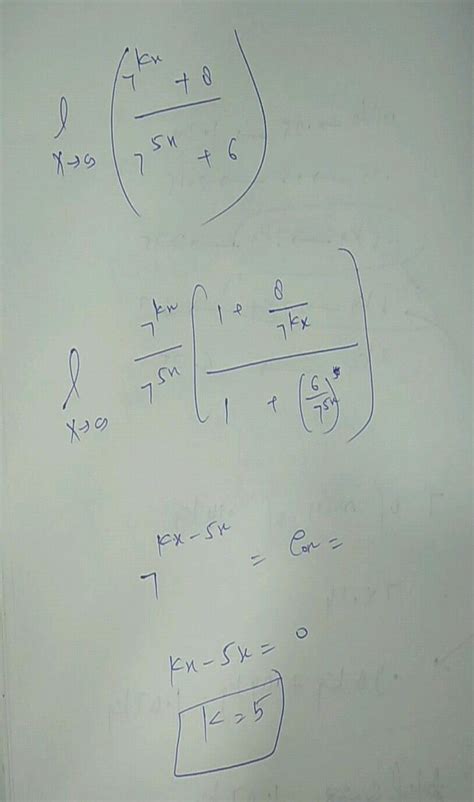 l x→∞ ( (7^{kx} + 8) / (7^{5x} + 6) )
l x→∞ 7^{kx} / 7^{5x} ( (1 + 8 / 7^{kx}) / (1 + (6 / 7^{5x})) )
7^{kx-5x} = Con =
kx - 5x = 0
k = 5